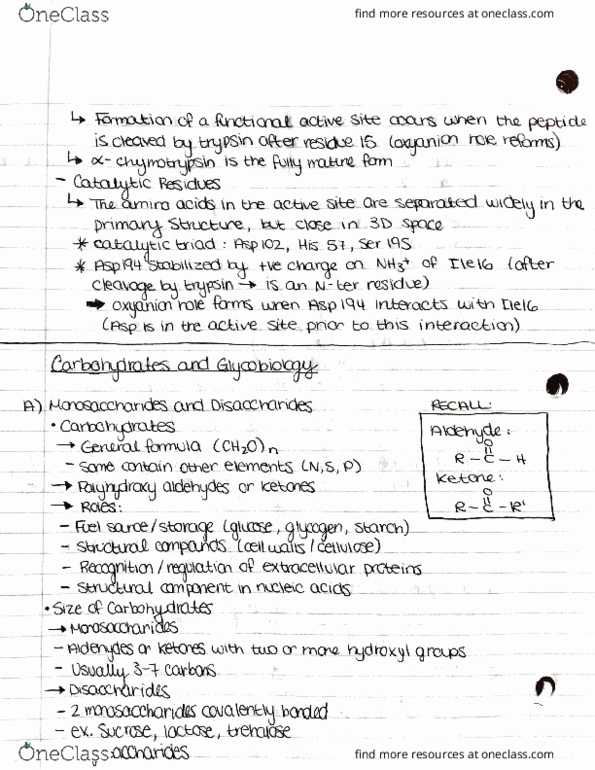 OneClass
find more resources at oneclass.com
↳ Formation of a functional active site occurs when the peptide
is cleaved by trypsin after residue 15 (oxyanion hole reforms)
↳ α-chymotrypsin is the fully mature form
- Catalytic Residues
↳ The amino acids in the active site are separated widely in the
primary structure, but close in 3D space
* catalytic triad : Asp102, His 57, Ser 195
* Asp194 stabilized by +ve charge on NH3+ of Ile16 (after
cleavage by trypsin → is an N-ter residue)
→ oxyanion hole forms when Asp 194 interacts with Ile16
(Asp is in the active site prior to this interaction)
Carbohydrates and Glycobiology
A) Monosaccharides and Disaccharides
• Carbohydrates
→ General formula (CH2O)n
- Some contain other elements (N, S, P)
→ Polyhydroxy aldehydes or ketones
→ Roles:
- Fuel source/storage (glucose, glycogen, starch)
- Structural compounds (cell walls/cellulose)
- Recognition/regulation of extracellular proteins
- Structural component in nucleic acids
• Size of Carbohydrates
→ Monosaccharides
- Aldehydes or ketones with two or more hydroxyl groups
- Usually 3-7 carbons
→ Disaccharides
- 2 monosaccharides covalently bonded
- ex. Sucrose, lactose, trehalose
RECALL:
Aldehyde:
O
R-C-H
Ketone:
O
R-C-R'
OneClass
find more resources at oneclass.com